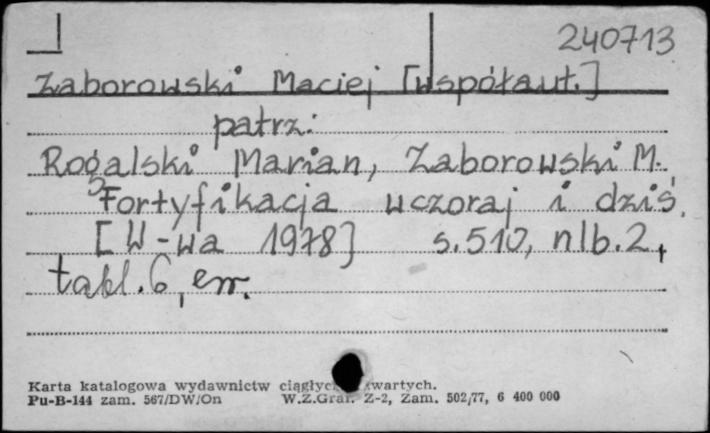 240713
Zaborowski Maciej [współaut.]
patrz:
Rogalski Marian, Zaborowski M.
Fortyfikacja wczoraj i dziś.
[W-wa 1978] s.510, nlb.2,
tabl.6, err.
Karta katalogowa wydawnictw
Pu-B-144 zam. 567/DW/On W.Z.Graf. Z-2, Zam. 502/77, 6 400 000